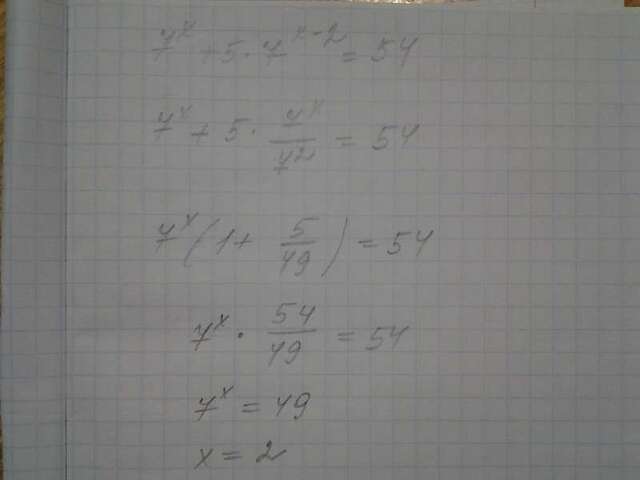 7^x + 5 · 7^{x-2} = 54
7^x + 5 · \frac{7^x}{7^2} = 54
7^x (1 + \frac{5}{49}) = 54
7^x · \frac{54}{49} = 54
7^x = 49
x = 2